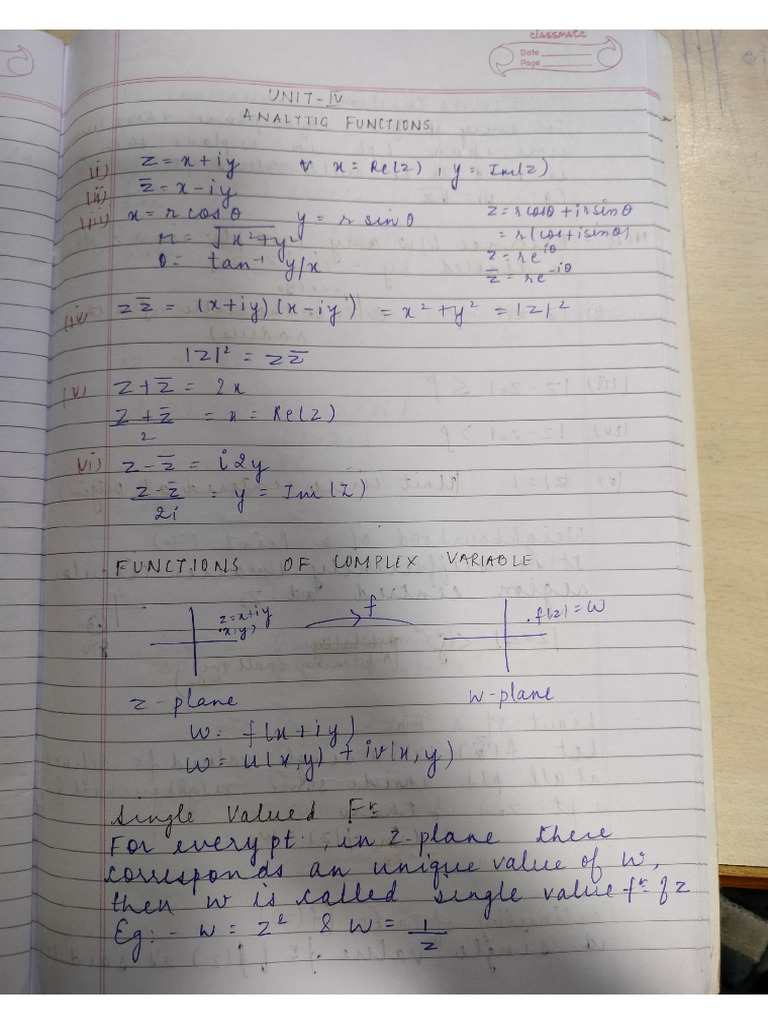 classmate
Date
Page
UNIT-IV
ANALYTIC FUNCTIONS
i) z = x+iy x = Re(z), y = Im(z)
ii) z̄ = x-iy
iii) x = r cosθ y = r sinθ z = r cosθ + i r sinθ
r = √x²+y² = r(cos+isinθ)
θ = tan⁻¹ y/x z = re^iθ
z̄ = re^-iθ
iv) z z̄ = (x+iy)(x-iy) = x²+y² = |z|²
|z|² = z z̄
v) z + z̄ = 2x
z + z̄ / 2 = x = Re(z)
vi) z - z̄ = i2y
z - z̄ / 2i = y = Im(z)
FUNCTIONS OF COMPLEX VARIABLE
z = x+iy f .f(z) = w
.x,y)
z-plane w-plane
w = f(x+iy)
w = u(x,y) + iv(x,y)
Single Valued Fⁿ
For every pt. in z-plane there
corresponds an unique value of w,
then w is called single value fⁿ of z
Eg:- w = z² & w = 1/z